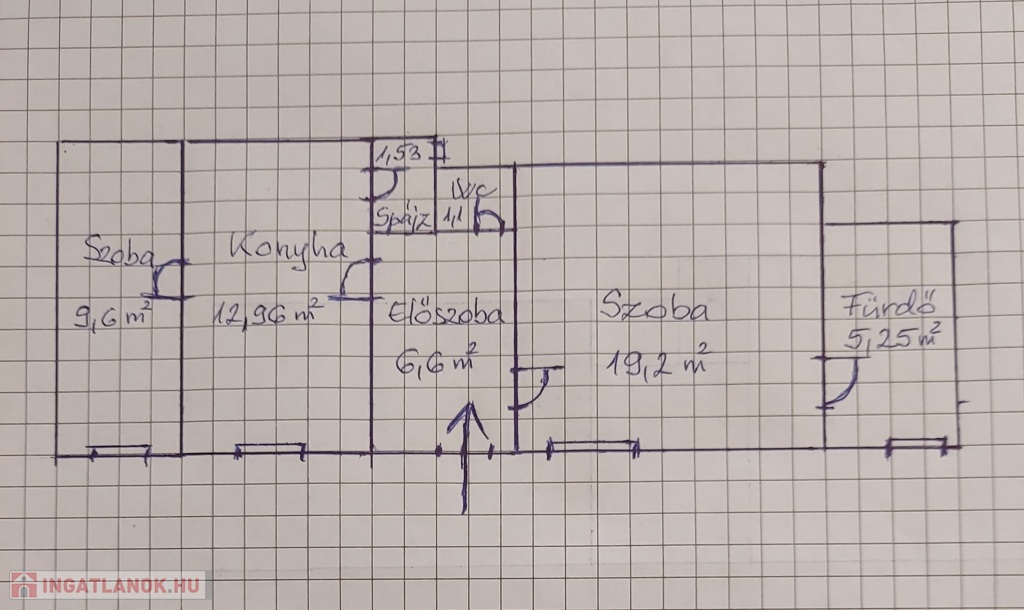 Szoba
9,6 m²
Konyha
12,96 m²
1,53
Spájz
WC
1,1
Előszoba
6,6 m²
Szoba
19,2 m²
Fürdő
5,25 m²
INGATLANOK.HU